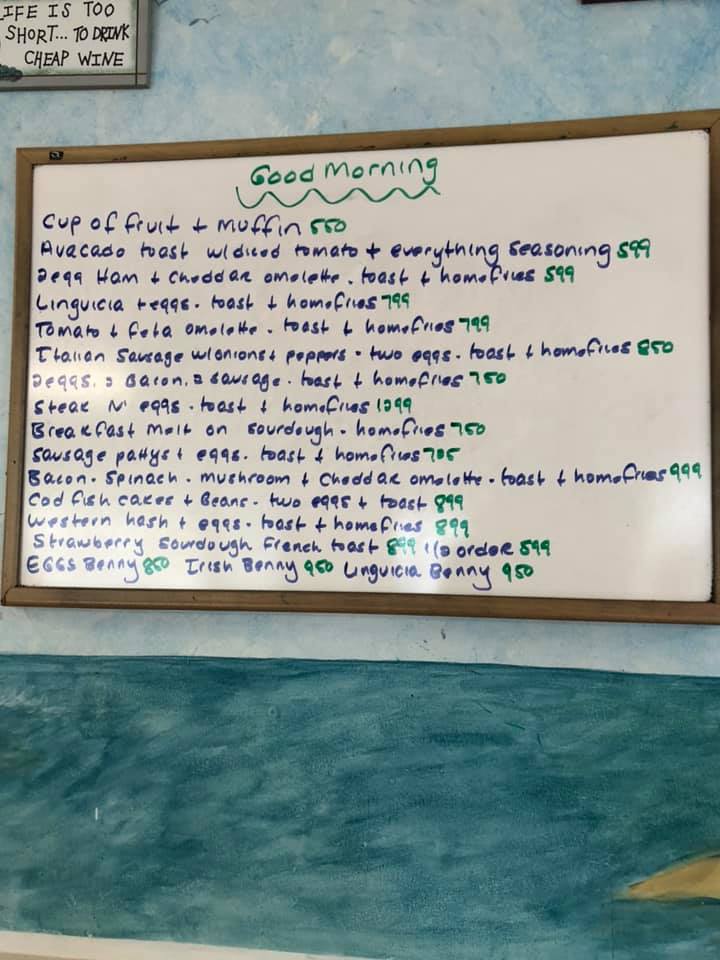 LIFE IS TOO
SHORT... TO DRINK
CHEAP WINE
Good Morning
Cup of fruit + muffin 550
Avacado toast w/diced tomato + everything seasoning 599
2egg Ham + Cheddar omelette. toast + homefries 599
Linguicia + eggs. toast + homefries 799
Tomato + feta omelette. toast + homefries 799
Italian Sausage w/onions + peppers. two eggs. toast + homefries 850
2eggs. 2 Bacon. 2 sausage. toast + homefries 750
Steak N' eggs. toast + homefries 1299
Breakfast melt on sourdough. homefries 750
Sausage pattys + eggs. toast + homefries 785
Bacon. Spinach. mushroom + Cheddar omelette. toast + homefries 999
Cod fish cakes + Beans. two eggs + toast 899
Western hash + eggs. toast + homefries 899
Strawberry sourdough French toast 899 1/2 order 599
EGGS Benny 850 Irish Benny 950 Linguicia Benny 950